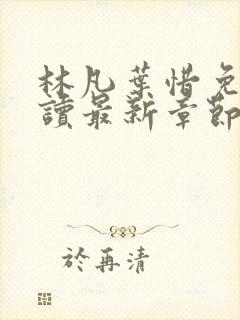 林凡葉惜免
讀最新章節
於再清